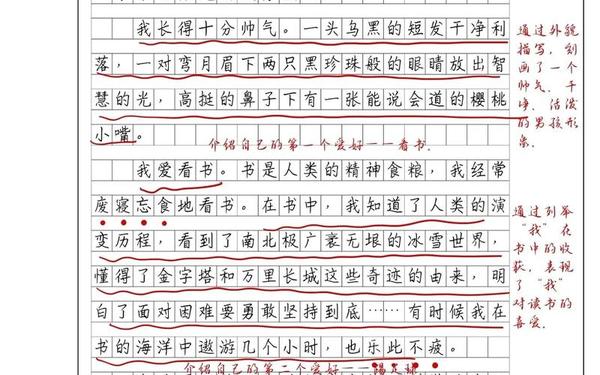 我长得十分帅气。一头乌黑的短发干净利
落，一对弯月眉下两只黑珍珠般的眼睛放出智
慧的光，高挺的鼻子下有一张能说会道的樱桃
小嘴。
通过外貌
描写，刻
画了一个
帅气、干
净、活泼
的男孩形
象。
介绍自己的第一个爱好——看书。
我爱看书。书是人类的精神食粮，我经常
废寝忘食地看书。在书中，我知道了人类的演
变历程，看到了南北极广袤无垠的冰雪世界，
懂得了金字塔和万里长城这些奇迹的由来，明
白了面对困难要勇敢坚持到底……有时候我在
书的海洋中遨游几个小时，也乐此不疲。
通过列举
“我”在
书中的收
获，表现
了“我”
对读书的
喜爱。
介绍自己的第二个爱好——踢足球。